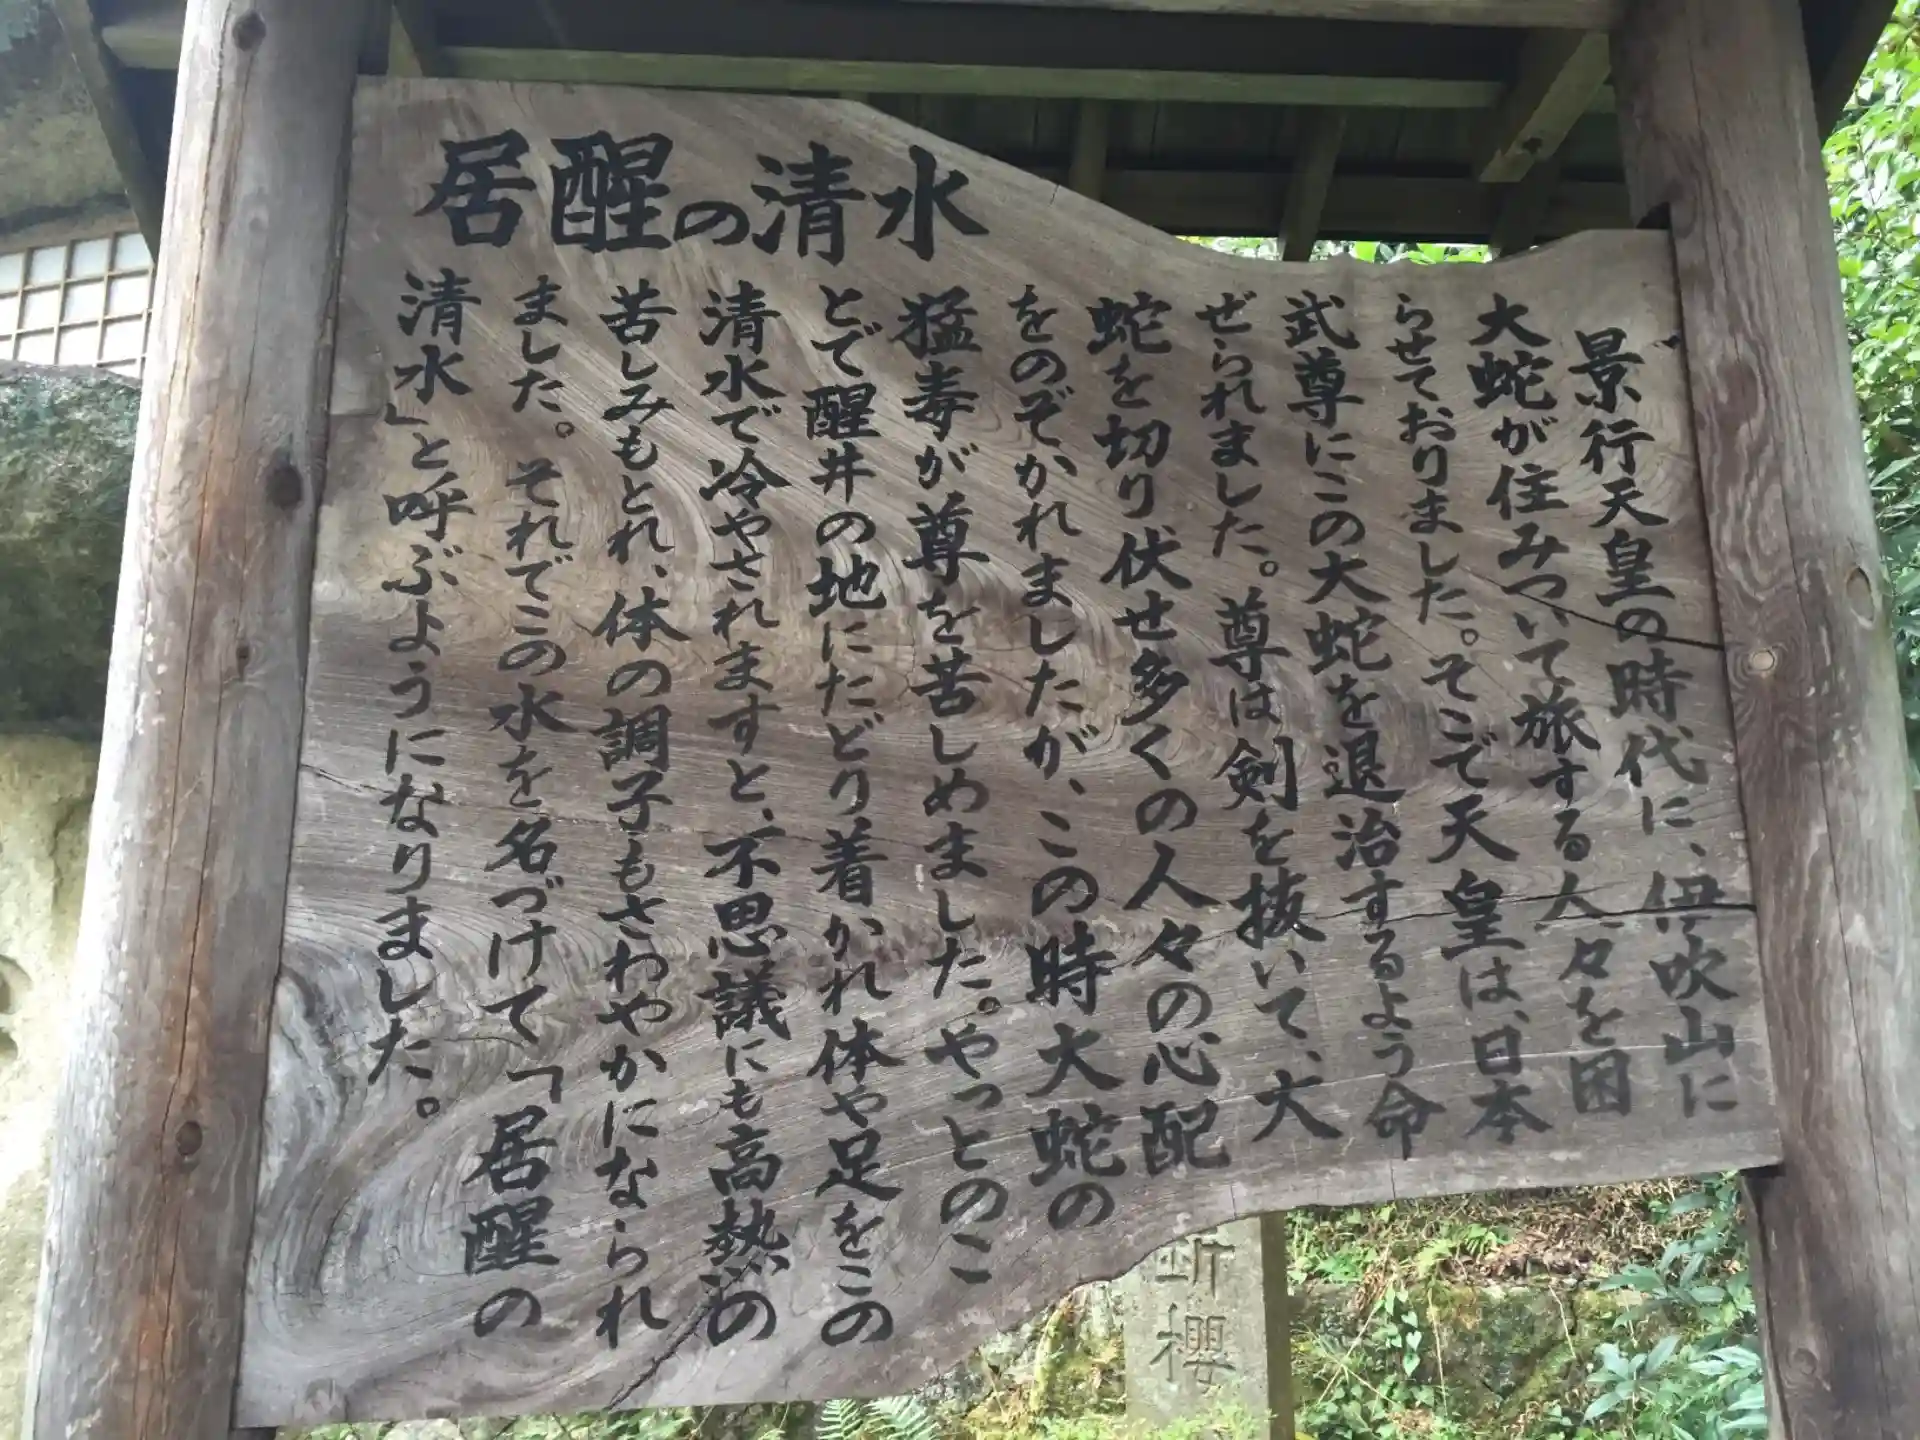 居醒の清水
景行天皇の時代に、伊吹山に
大蛇が住みついて旅する人々を困
らせておりました。そこで天皇は、日本
武尊にこの大蛇を退治するよう命
ぜられました。尊は剣を抜いて、大
蛇を切り伏せ多くの人々の心配
をのぞかれましたが、この時大蛇の
猛毒が尊を苦しめました。やっとのこ
とで醒井の地にたどり着かれ体や足をこの
清水で冷やされますと、不思議にも高熱の
苦しみもとれ、体の調子もさわやかになられ
ました。それでこの水を名づけて「居醒の
清水」と呼ぶようになりました。
櫻